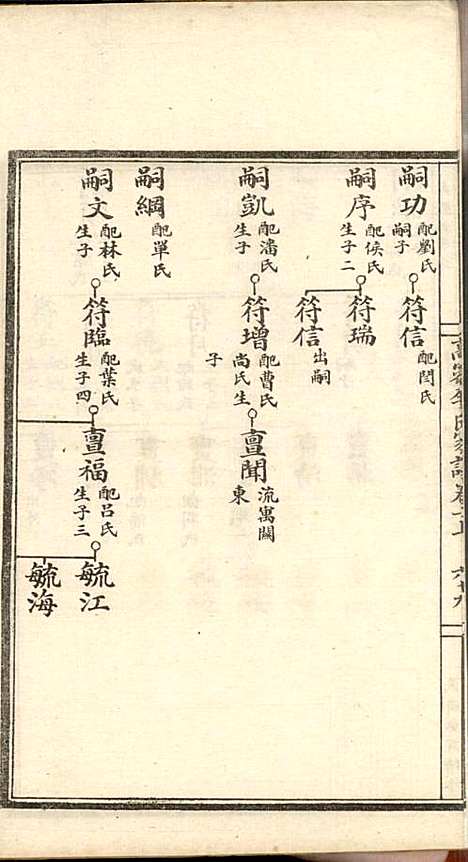 嗣功
配劉氏
嗣子
符信
配閔氏
嗣序
配侯氏
生子二
符瑞
符信
出嗣
嗣凱
配潘氏
生子
符增
配曹氏
尚氏生
子
亶聞
流寓關
東
嗣綱
配單氏
嗣文
配林氏
生子
符臨
配葉氏
生子四
亶福
配呂氏
生子三
毓江
毓海